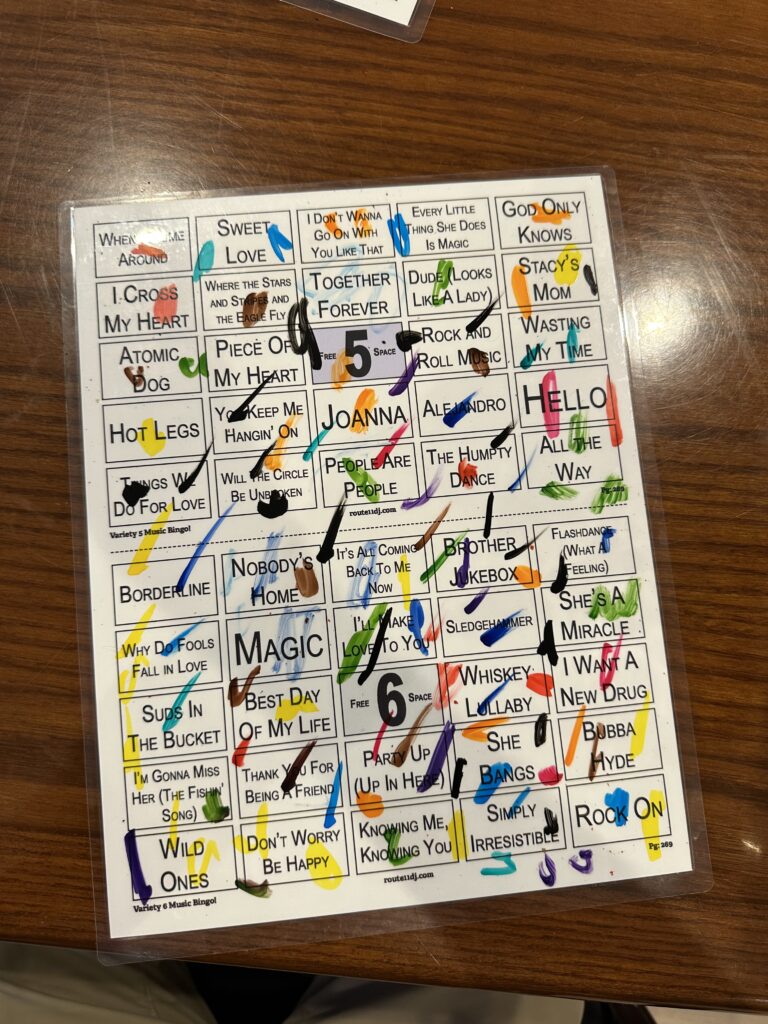 When
Around
Sweet
Love
I Don't Wanna
Go On With
You Like That
Every Little
Thing She Does
Is Magic
God Only
Knows
I Cross
My Heart
Where the Stars
and Stripes and
the Eagle Fly
Together
Forever
Dude (Looks
Like A Lady)
Stacy's
Mom
Atomic
Dog
Piece Of
My Heart
Free 5 Space
Rock and
Roll Music
Wasting
My Time
Hot Legs
You Keep Me
Hangin' On
Joanna
Alejandro
Hello
Things We
Do For Love
Will the Circle
Be Unbroken
People Are
People
The Humpty
Dance
All the
Way
Variety 5 Music Bingo!
route11dj.com
Pg:
Borderline
Nobody's
Home
It's All Coming
Back To Me
Now
Brother
Jukebox
Flashdance
(What A
Feeling)
Why Do Fools
Fall in Love
Magic
I'll Make
Love To You
Sledgehammer
She's A
Miracle
Suds In
The Bucket
Best Day
Of My Life
Free 6 Space
Whiskey
Lullaby
I Want A
New Drug
I'm Gonna Miss
Her (The Fishin'
Song)
Thank You For
Being A Friend
Party Up
(Up In Here)
She
Bangs
Bubba
Hyde
Wild
Ones
Don't Worry
Be Happy
Knowing Me,
Knowing You
Simply
Irresistible
Rock On
Variety 6 Music Bingo!
route11dj.com
Pg: 269